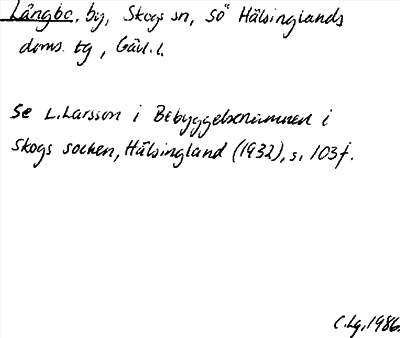 Långbo, by, Skogs sn, SÖ Hälsinglands
doms. tg, Gävl. l.
Se L. Larsson i Bebyggelsenamnen i
Skogs socken, Hälsingland (1932), s. 103f.
C.Lg. 1986.